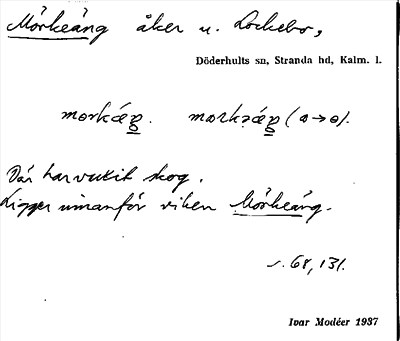 Mörkeäng åker u. Lockebo,
Döderhults sn, Stranda hd, Kalm. l.
Där har vuxit skog.
Ligger innanför viken Mörkeäng.
s. 68, 131.
Ivar Modéer 1937